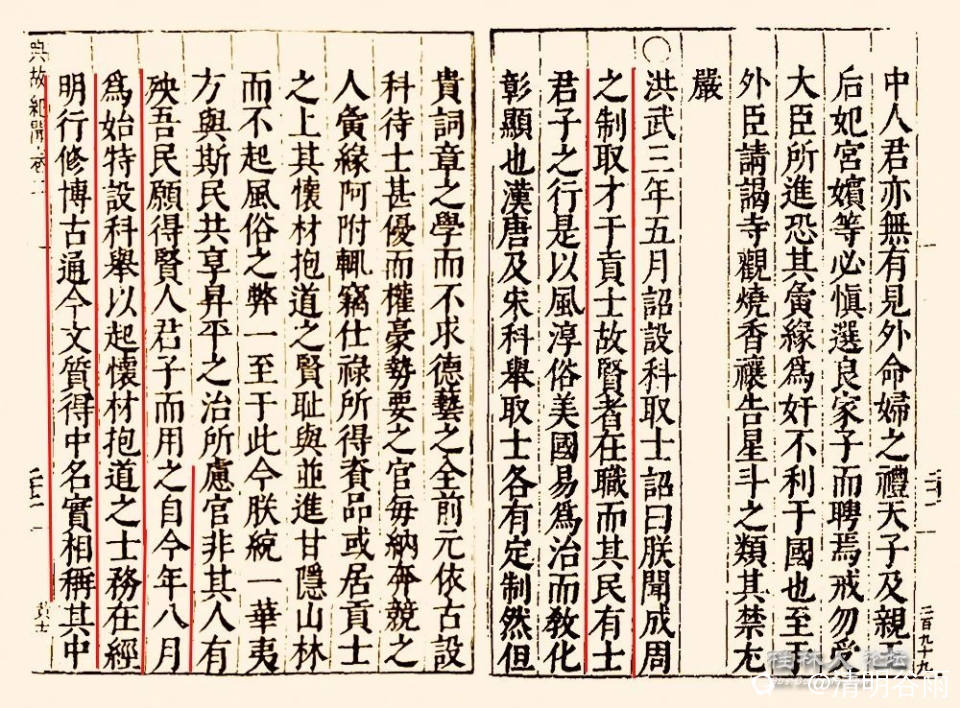 中人君亦無有見外命婦之禮天子及親王
后妃宮嬪等必慎選良家子而聘焉戒勿受
大臣所進恐其夤緣爲奸不利于國也至于
外臣請謁寺觀燒香禳告星斗之類其禁尤
嚴
〇洪武三年五月詔設科取士詔曰朕聞成周
之制取才于貢士故賢者在職而其民有士
君子之行是以風淳俗美國易爲治而教化
彰顯也漢唐及宋科舉取士各有定制然但
貴詞章之學而不求德藝之全前元依古設
科待士甚優而權豪勢要之官每納奔競之
人夤緣阿附輒竊仕祿所得資品或居貢士
之上其懷材抱道之賢恥與並進甘隱山林
而不起風俗之弊一至于此今朕統一華夷
方與斯民共享昇平之治所慮官非其人有
殃吾民願得賢人君子而用之自今年八月
爲始特設科舉以起懷材抱道之士務在經
明行修博古通今文質得中名實相稱其中
典故紀聞卷二
桂林人论坛
@清明谷雨